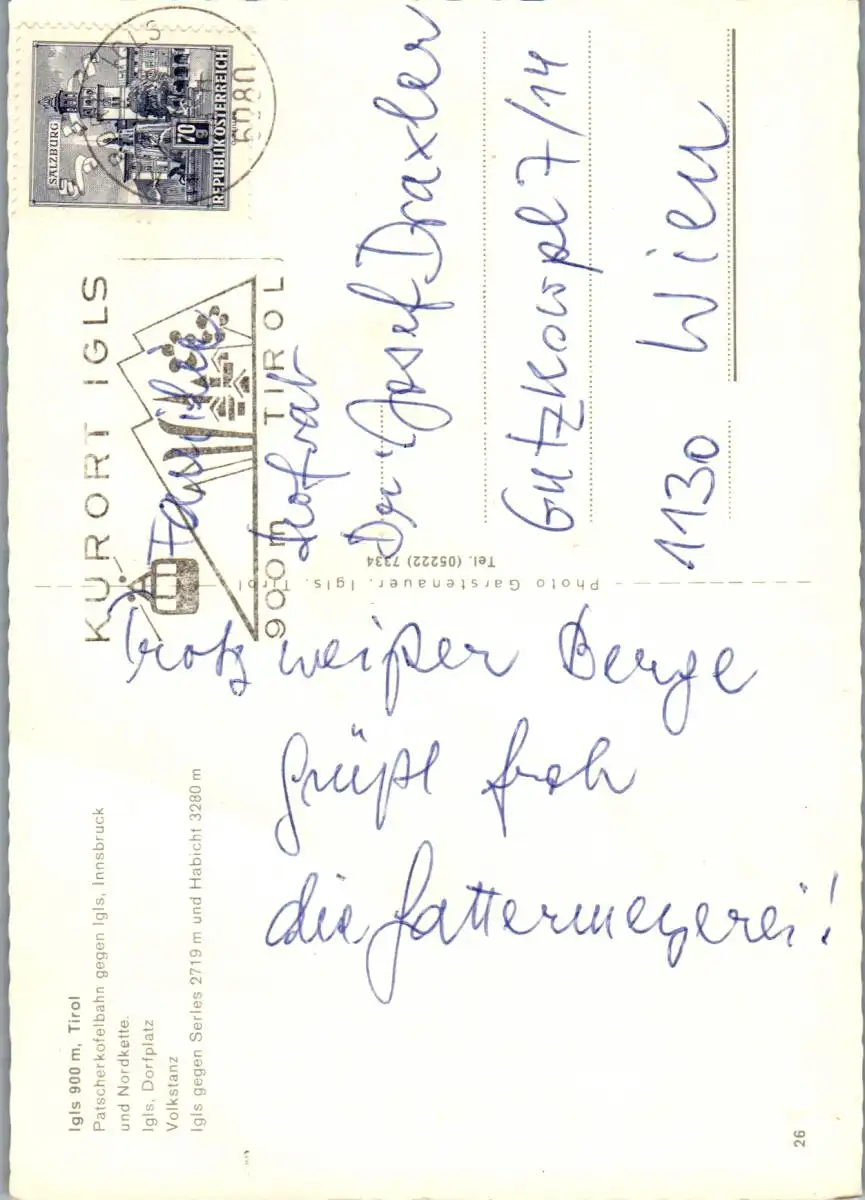 Igls 900 m, Tirol
Patscherkofelbahn gegen Igls, Innsbruck
und Nordkette.
Igls, Dorfplatz
Volkstanz
Igls gegen Serles 2719 m und Habicht 3280 m
Trotz weißer Berge
grüßt froh
die Gattermeyerei!
26
Photo Garstenauer, Igls, Tirol
Tel. (05222) 7334
KURORT IGLS
900m TIROL
IGLS
6080
SALZBURG
70 g
REPUBLIK ÖSTERREICH
Familie
Hofrat
Dr. Josef Draxler
Gutzkowpl 7/14
1130 Wien